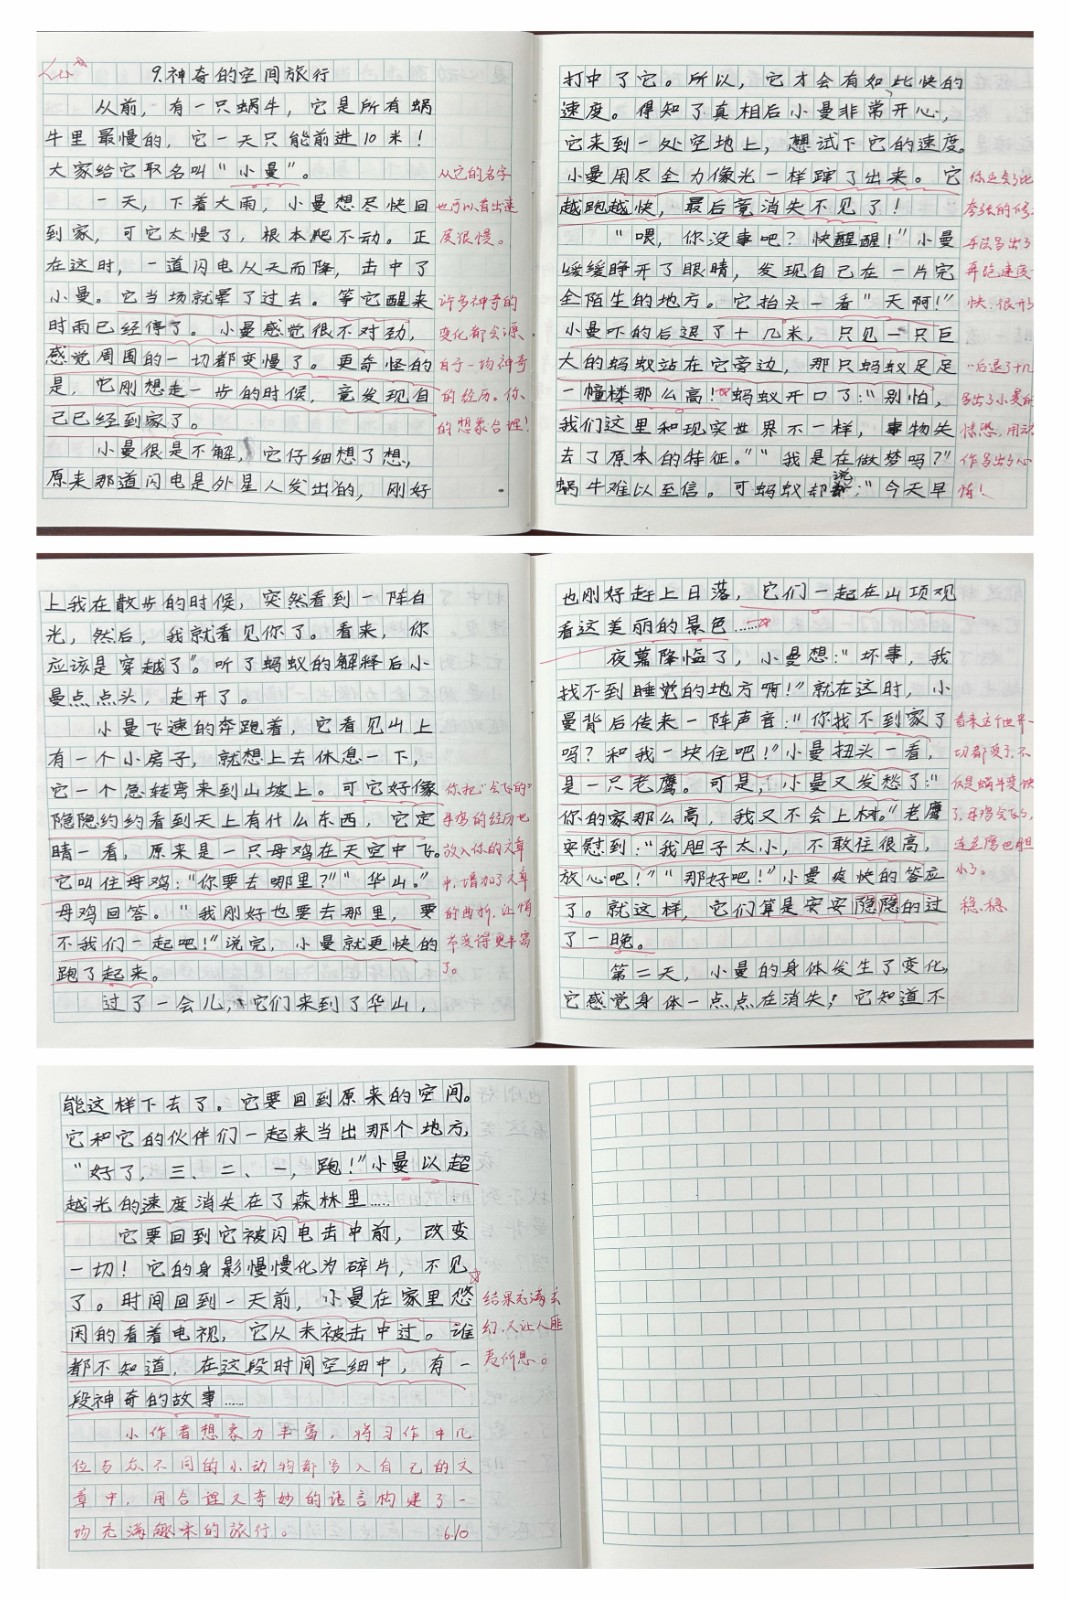 9.神奇的空间旅行
从前，有一只蜗牛，它是所有蜗
牛里最慢的，它一天只能前进10米！
大家给它取名叫“小曼”。
一天，下着大雨，小曼想尽快回
到家，可它太慢了，根本爬不动。正
在这时，一道闪电从天而降，击中了
小曼。它当场就晕了过去。等它醒来
时雨已经停了。小曼感觉很不对劲，
感觉周围的一切都变慢了。更奇怪的
是，它刚想走一步的时候，竟发现自
己已经到家了。
小曼很是不解，它仔细想了想，
原来那道闪电是外星人发出的，刚好
从它的名字
也可以看出速
度很慢。
许多神奇的
变化都会源
自于一场神奇
的经历。你
的想象合理！
打中了它。所以，它才会有如此快的
速度。得知了真相后小曼非常开心，
它来到一处空地上，想试下它的速度。
小曼用尽全力像光一样蹿了出来。它
越跑越快，最后竟消失不见了！
“喂，你没事吧？快醒醒！”小曼
缓缓睁开了眼睛，发现自己在一片完
全陌生的地方。它抬头一看“天啊！”
小曼吓的后退了十几米，只见一只巨
大的蚂蚁站在它旁边，那只蚂蚁足足
一幢楼那么高！蚂蚁开口了：“别怕，
我们这里和现实世界不一样，事物失
去了原本的特征。”“我是在做梦吗？”
蜗牛难以至信。可蚂蚁却说：“今天早
手法写出了
“后退了十几
写出了小曼的
惊恐，用动
作写出了心
情！
上我在散步的时候，突然看到一阵白
光，然后，我就看见你了。看来，你
应该是穿越了”。听了蚂蚁的解释后小
曼点点头，走开了。
小曼飞速的奔跑着，它看见山上
有一个小房子，就想上去休息一下，
它一个急转弯来到山坡上。可它好像
隐隐约约看到天上有什么东西，它定
睛一看，原来是一只母鸡在天空中飞。
它叫住母鸡：“你要去哪里？”“华山。”
母鸡回答。“我刚好也要去那里，要
不我们一起吧！”说完，小曼就更快的
跑了起来。
过了一会儿，它们来到了华山，
你把“会飞的”
母鸡的经历也
放入你的文章
中，增加了文章
的曲折，让情
节变得更丰富
了。
也刚好赶上日落，它们一起在山顶观
看这美丽的景色……
夜幕降临了，小曼想：“坏事，我
找不到睡觉的地方啊！”就在这时，小
曼背后传来一阵声音：“你找不到家了
吗？和我一块住吧！”小曼扭头一看，
是一只老鹰。可是，小曼又发愁了：“
你的家那么高，我又不会上树。”老鹰
安慰到：“我胆子太小，不敢住很高，
放心吧！”“那好吧！”小曼爽快的答应
了。就这样，它们算是安安隐隐的过
了一晚。
第二天，小曼的身体发生了变化，
它感觉身体一点点在消失；它知道不
看来这个世界一
切都变了，不
仅是蜗牛变快
了，母鸡会飞了，
连老鹰也胆
小了。
稳稳
能这样下去了。它要回到原来的空间。
它和它的伙伴们一起来当出那个地方，
“好了，三、二、一，跑！”小曼以超
越光的速度消失在了森林里……
它要回到它被闪电击中前，改变
一切！它的身影慢慢化为碎片，不见
了。时间回到一天前，小曼在家里悠
闲的看着电视，它从未被击中过。谁
都不知道，在这段时间空细中，有一
段神奇的故事……
结果充满玄
幻，又让人匪
夷所思。
小作者想象力丰富，将习作中几
位与众不同的小动物都写入自己的文
章中，用合理又奇妙的语言构建了一
场充满趣味的旅行。 6.10